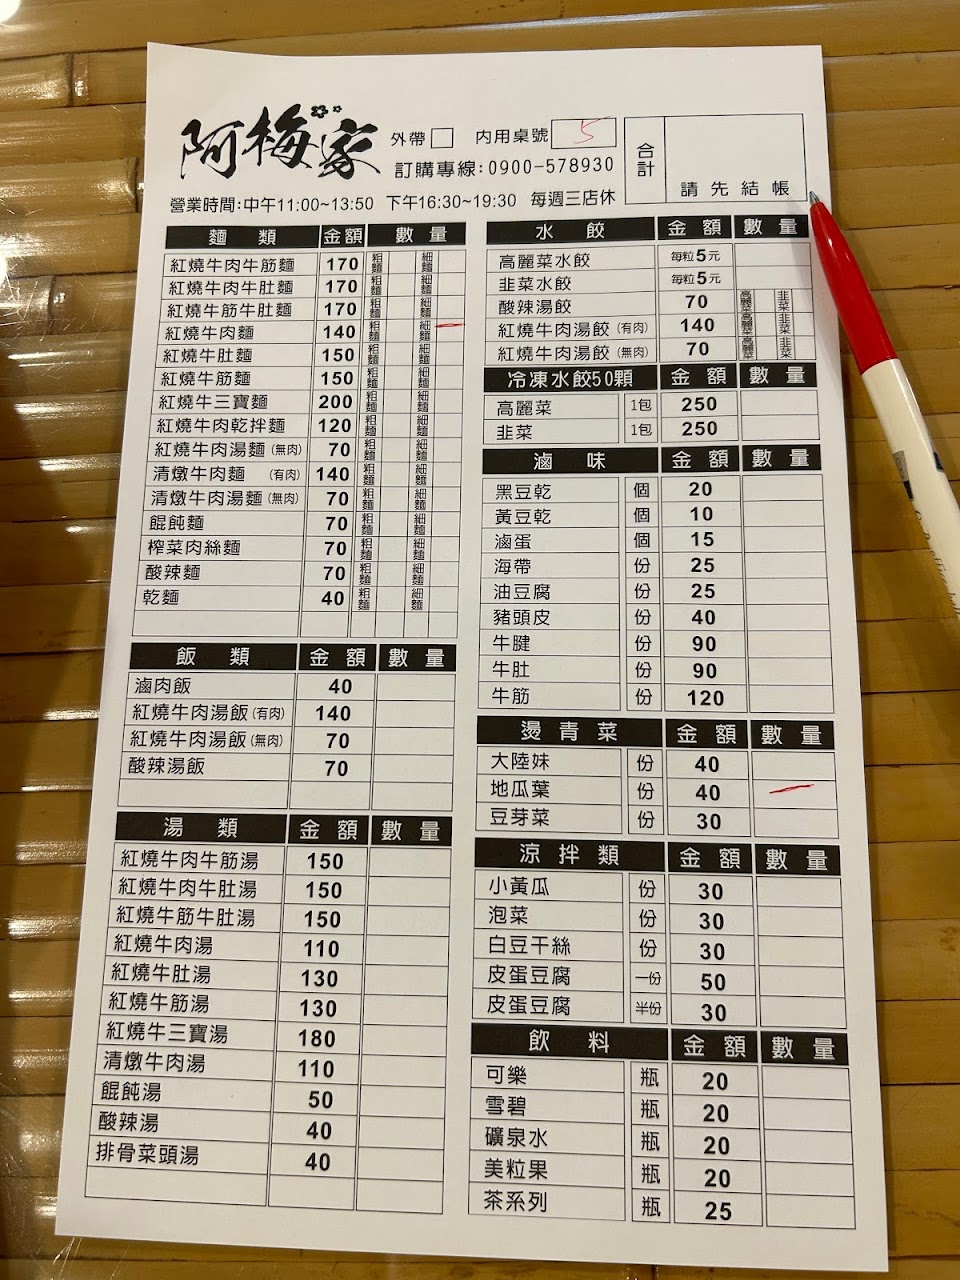 阿梅家
外帶 內用桌號 5
訂購專線:0900-578930
合計
請先結帳
營業時間:中午11:00~13:50 下午16:30~19:30 每週三店休
麵類 金額 數量
紅燒牛肉牛筋麵 170 粗麵 細麵
紅燒牛肉牛肚麵 170 粗麵 細麵
紅燒牛筋牛肚麵 170 粗麵 細麵
紅燒牛肉麵 140 粗麵 細麵
紅燒牛肚麵 150 粗麵 細麵
紅燒牛筋麵 150 粗麵 細麵
紅燒牛三寶麵 200 粗麵 細麵
紅燒牛肉乾拌麵 120 粗麵 細麵
紅燒牛肉湯麵(無肉) 70 粗麵 細麵
清燉牛肉麵 (有肉) 140 粗麵 細麵
清燉牛肉湯麵(無肉) 70 粗麵 細麵
餛飩麵 70 粗麵 細麵
榨菜肉絲麵 70 粗麵 細麵
酸辣麵 70 粗麵 細麵
乾麵 40 粗麵 細麵
飯類 金額 數量
滷肉飯 40
紅燒牛肉湯飯(有肉) 140
紅燒牛肉湯飯(無肉) 70
酸辣湯飯 70
湯類 金額 數量
紅燒牛肉牛筋湯 150
紅燒牛肉牛肚湯 150
紅燒牛筋牛肚湯 150
紅燒牛肉湯 110
紅燒牛肚湯 130
紅燒牛筋湯 130
紅燒牛三寶湯 180
清燉牛肉湯 110
餛飩湯 50
酸辣湯 40
排骨菜頭湯 40
水餃 金額 數量
高麗菜水餃 每粒5元
韭菜水餃 每粒5元
酸辣湯餃 70 高麗菜 韭菜
紅燒牛肉湯餃(有肉) 140 高麗菜 韭菜
紅燒牛肉湯餃(無肉) 70 高麗菜 韭菜
冷凍水餃50顆 金額 數量
高麗菜 1包 250
韭菜 1包 250
滷味 金額 數量
黑豆乾 個 20
黃豆乾 個 10
滷蛋 個 15
海帶 份 25
油豆腐 份 25
豬頭皮 份 40
牛腱 份 90
牛肚 份 90
牛筋 份 120
燙青菜 金額 數量
大陸妹 份 40
地瓜葉 份 40
豆芽菜 份 30
涼拌類 金額 數量
小黃瓜 份 30
泡菜 份 30
白豆干絲 份 30
皮蛋豆腐 一份 50
皮蛋豆腐 半份 30
飲料 金額 數量
可樂 瓶 20
雪碧 瓶 20
礦泉水 瓶 20
美粒果 瓶 20
茶系列 瓶 25